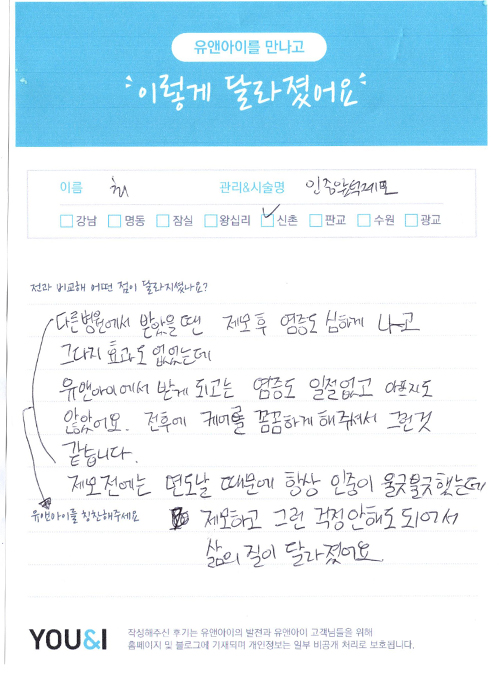 유앤아이를 만나고
이렇게 달라졌어요
이름 최 관리&시술명 인중앞턱제모
강남 명동 잠실 왕십리 신촌 판교 수원 광교
전과 비교해 어떤 점이 달라지셨나요?
다른병원에서 받았을땐 제모 후 염증도 심하게 나고
그다지 효과도 없었는데
유앤아이에서 받게 되고는 염증도 일절없고 아프지도
않았어요. 전후에 케어를 꼼꼼하게 해주셔서 그런것
같습니다.
제모전에는 면도날 때문에 항상 인중이 울긋불긋했는데
유앤아이를 칭찬해주세요
제모하고 그런 걱정안해도 되어서
삶의 질이 달라졌어요
YOU&I
작성해주신 후기는 유앤아이의 발전과 유앤아이 고객님들을 위해
홈페이지 및 블로그에 기재되며 개인정보는 일부 비공개 처리로 보호됩니다.